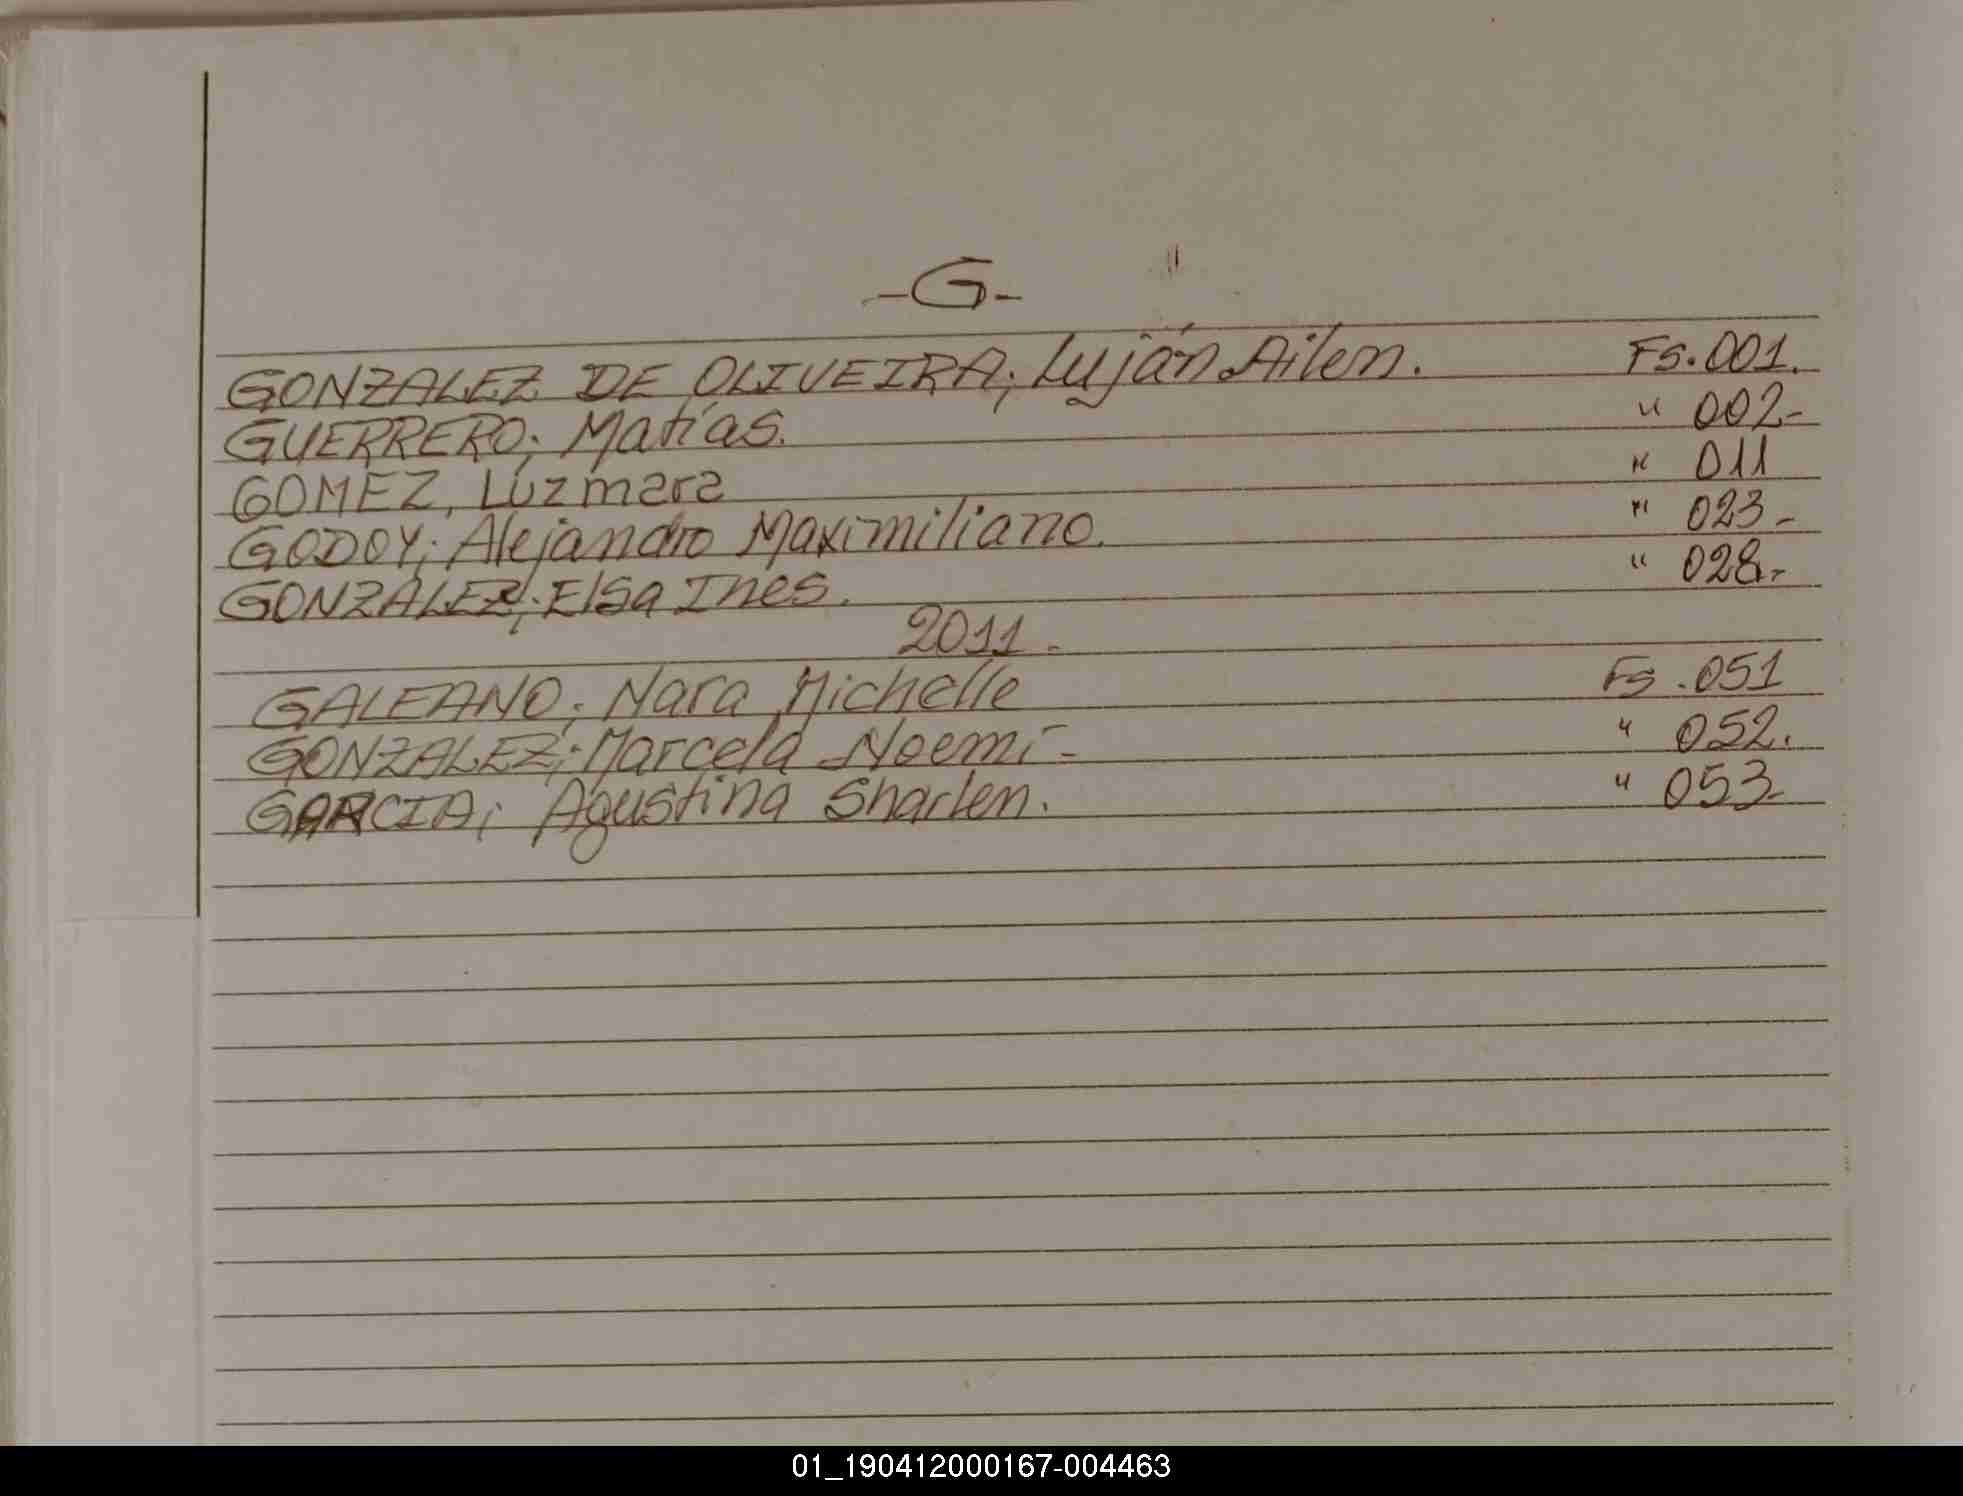 -G-
GONZALEZ DE OLIVEIRA; Luján Ailen. Fs. 001.
GUERRERO; Matías. " 002-
GOMEZ, Luzmara " 011
GODOY; Alejandro Maximiliano. " 023-
GONZALEZ; Elsa Ines. " 028.-
2011.
GALEANO; Nara Michelle Fs. 051
GONZALEZ; Marcela Noemí- " 052.
GARCIA; Agustina Sharlen. " 053-
01_190412000167-004463